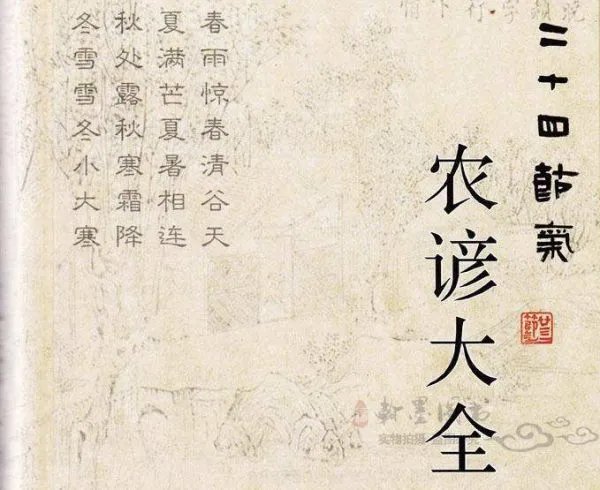 二十四節氣
农谚大全
春雨惊春清谷天
夏满芒夏暑相连
秋处露秋寒霜降
冬雪雪冬小大寒
实物拍摄